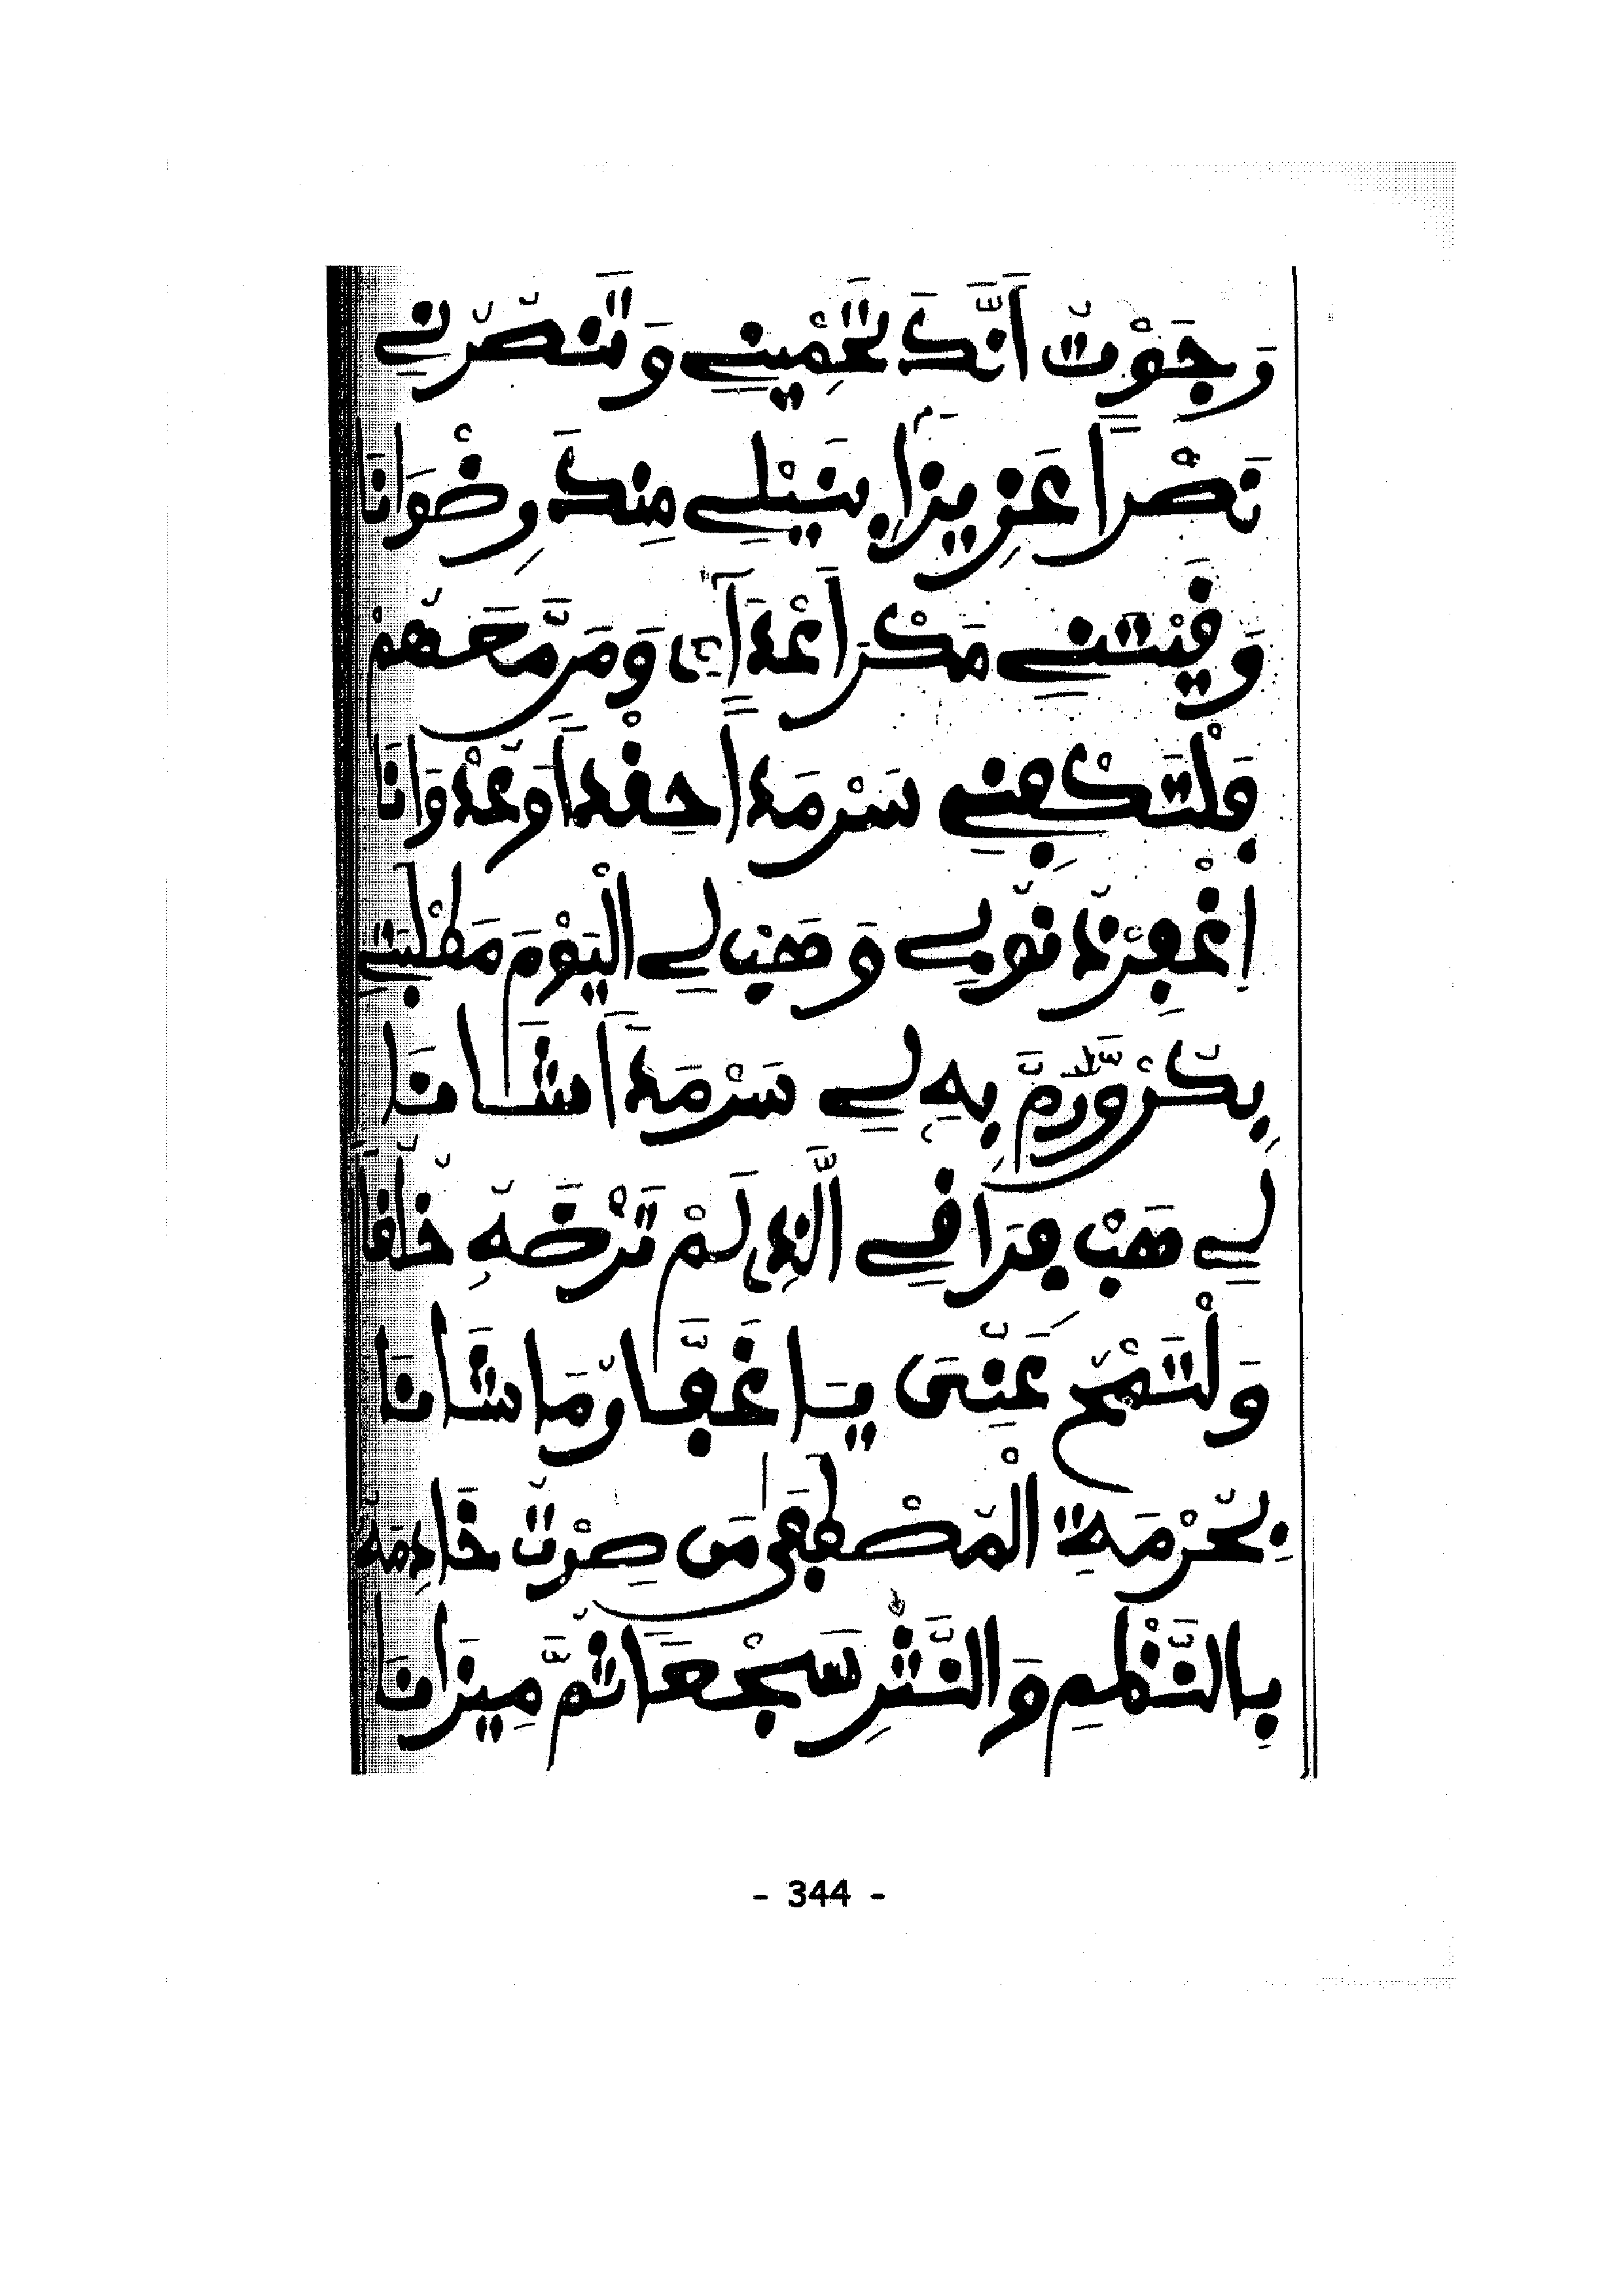 رَجَوْتُ أَنَّكَ تَحْمِينِي وَتَنْصُرُنِي
نَصْرًا عَزِيزًا بِنَيْلِي مِنكَ رِضْوَانَا
وَقِيتَنِي مَكْرَ أَعْدَاءٍ وَمَرَّ مَعَهُمْ
فَلْتَكْفِنِي سَرْمَدًا حِقْدًا وَعُدْوَانَا
اغْفِرْ ذُنُوبِي وَهَبْ لِي الْيَوْمَ مَطْلَبَتِي
بِكُرْ وَدُمْ بِهِ لِي سَرْمَدًا شَانَا
لِي هَبْ فِرَاقِي الَّذِي لَمْ تَرْضَهُ خُلُقًا
وَلْتَمْحُ عَنِّي يَا غَفَّارُ مَا شَانَا
بِحُرْمَةِ الْمُصْطَفَى مَن صِرْتُ خَادِمَهُ
بِالنَّظْمِ وَالنَّثْرِ سَجْعًا ثُمَّ مِيزَانَا
- 344 -